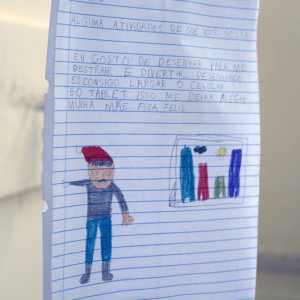 ALGUMA ATIVIDADES DE QUE VOCÊ GOSTA
EU GOSTO DE DESENHAR PARA ME
DESTRAIR E DIVERTIR. DESENHANDO
EU CONSIGO LARGAR O CELULAR
E O TABLET ISSO ME DEIXA ALEGRE
MINHA MÃE FICA FELIZ